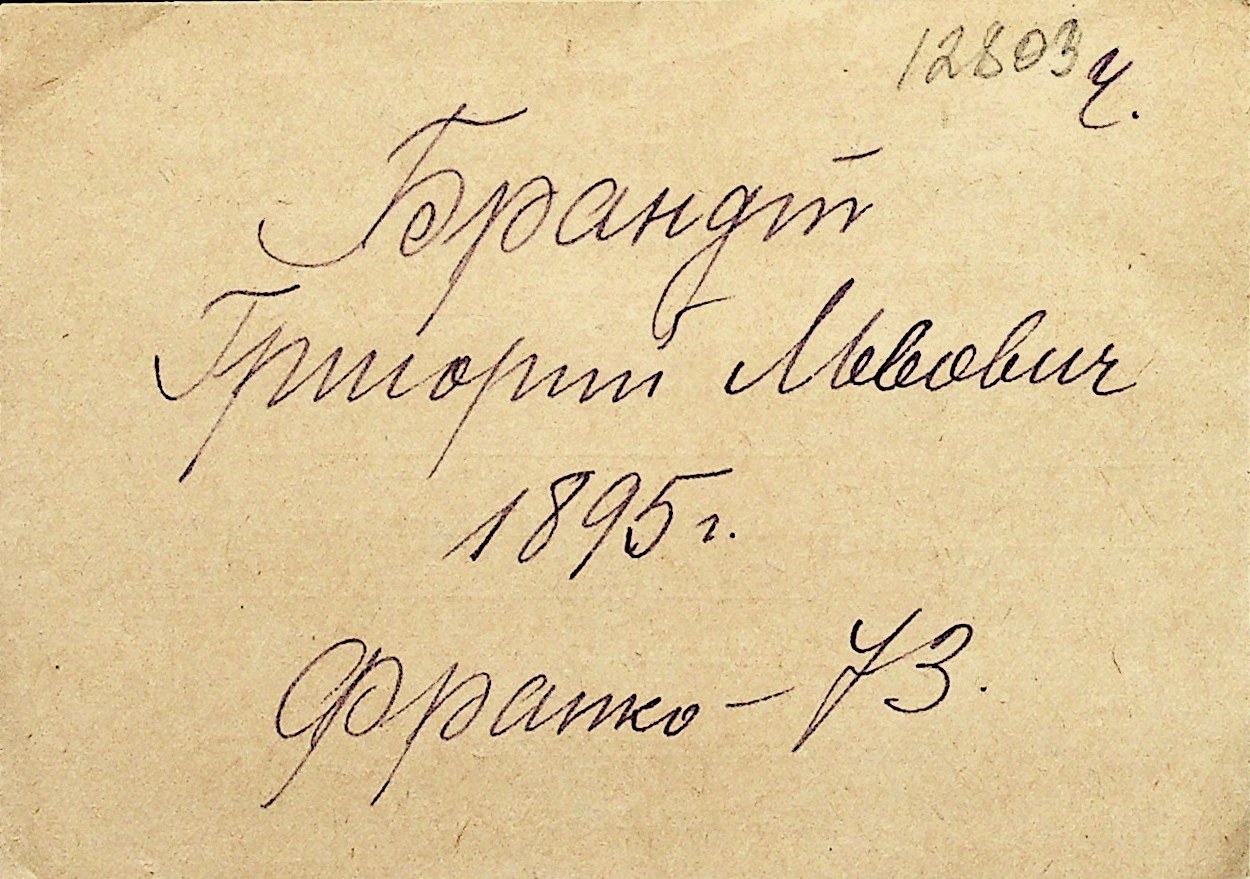 12803 ч.
Брандт
Григорий Львович
1895 г.
Франко - 73.